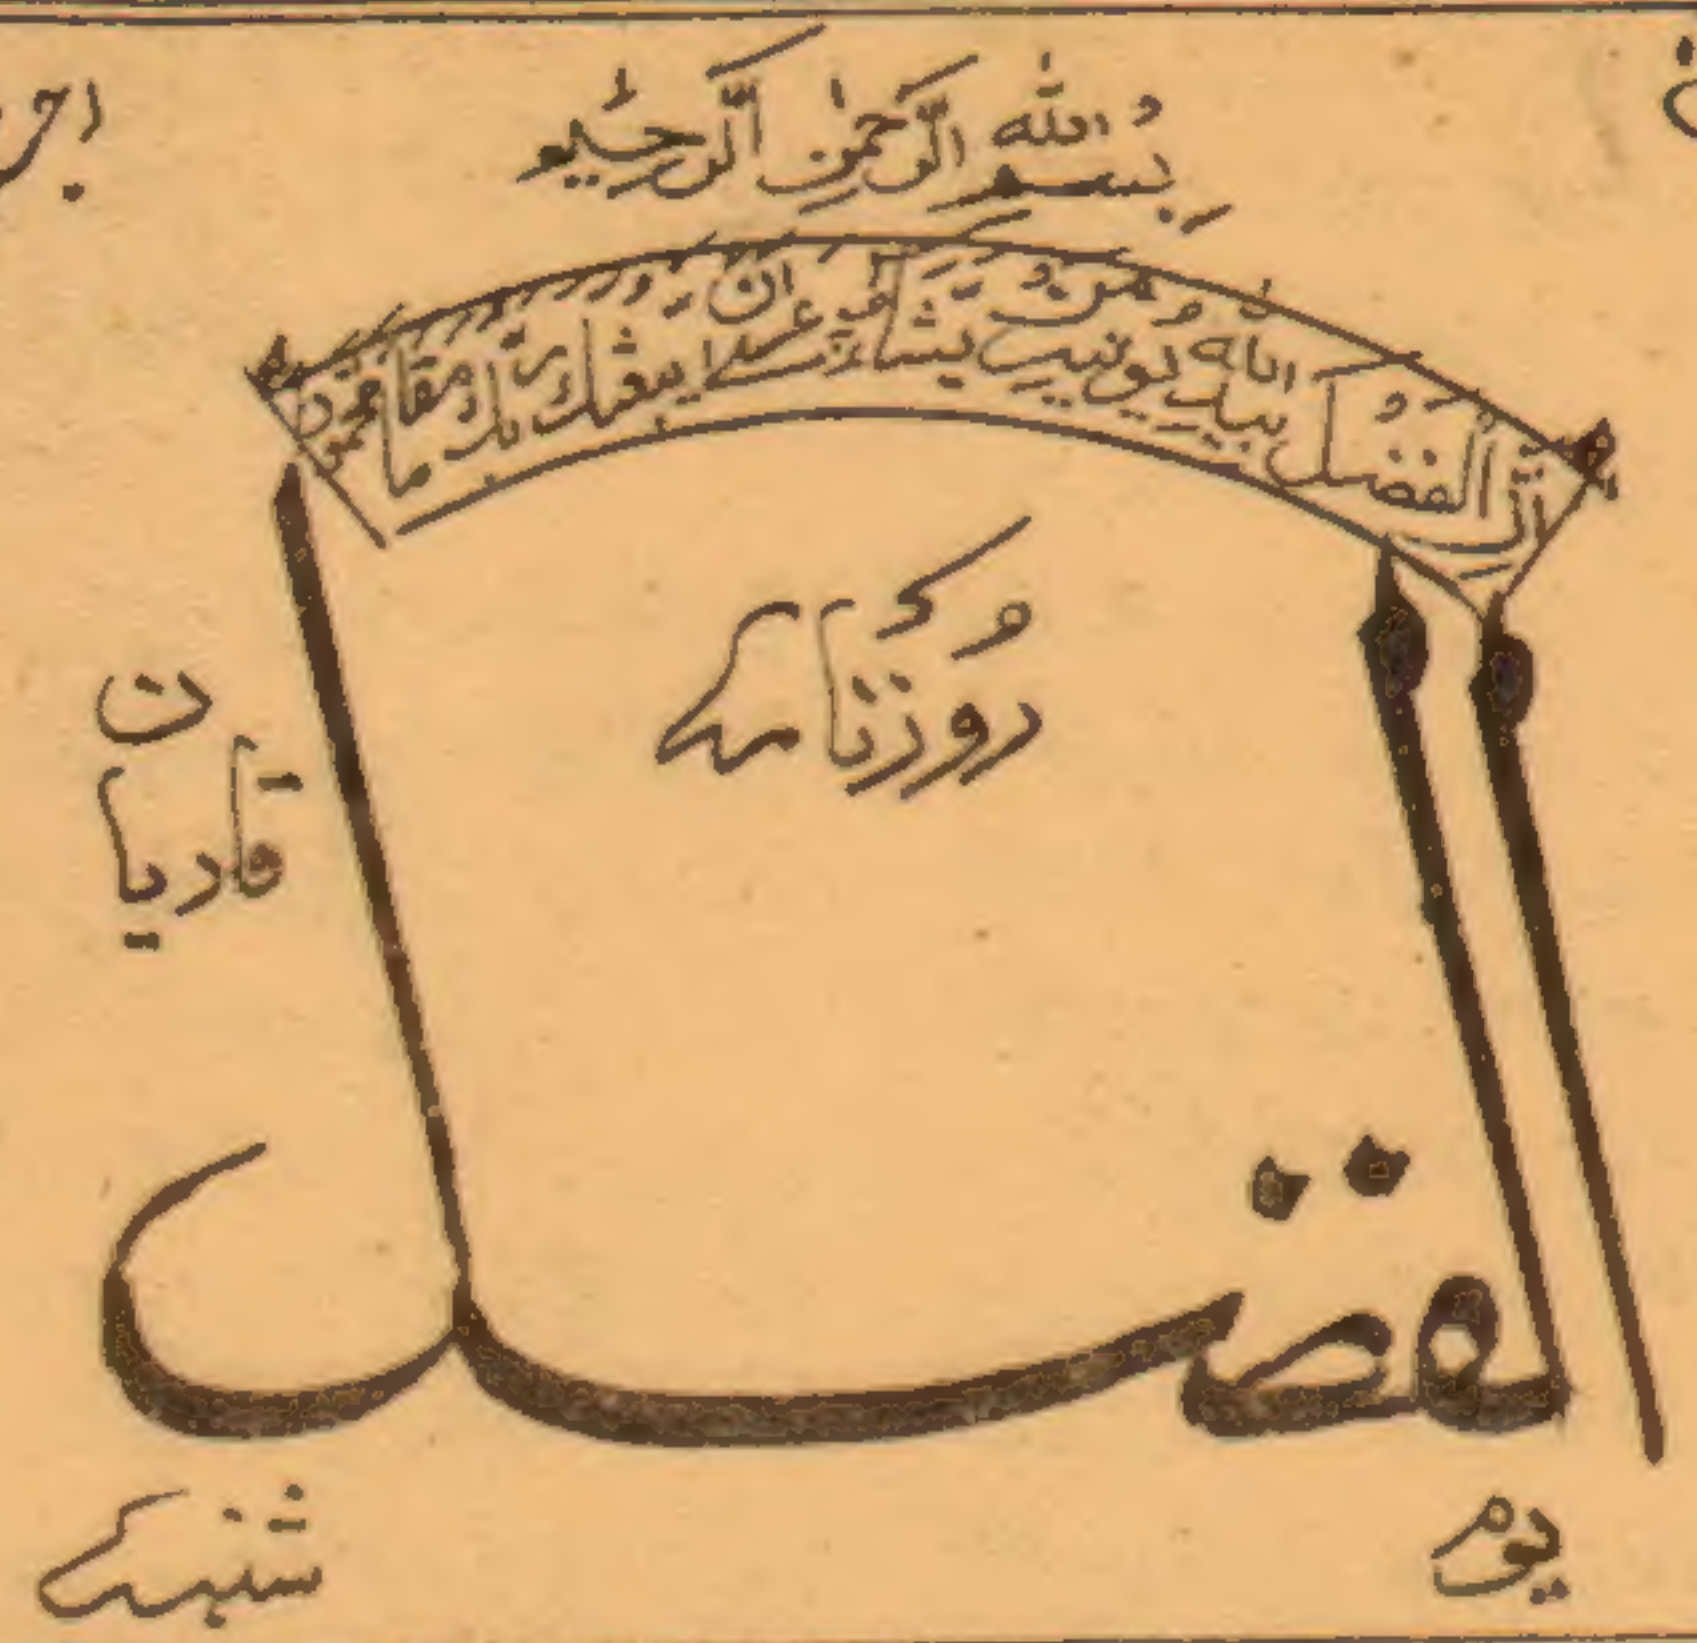 بِسْمِ اللهِ الرَّحْمٰنِ الرَّحِيْمِ
اِنَّ الْفَضْلَ بِيَدِ اللهِ يُؤْتِيْهِ مَنْ يَّشَآءُ عَسٰى اَنْ يَّبْعَثَكَ رَبُّكَ مَقَامًا مَّحْمُوْدًا
رُوزنامہ
قادیان
الفضل
یوم شنبہ